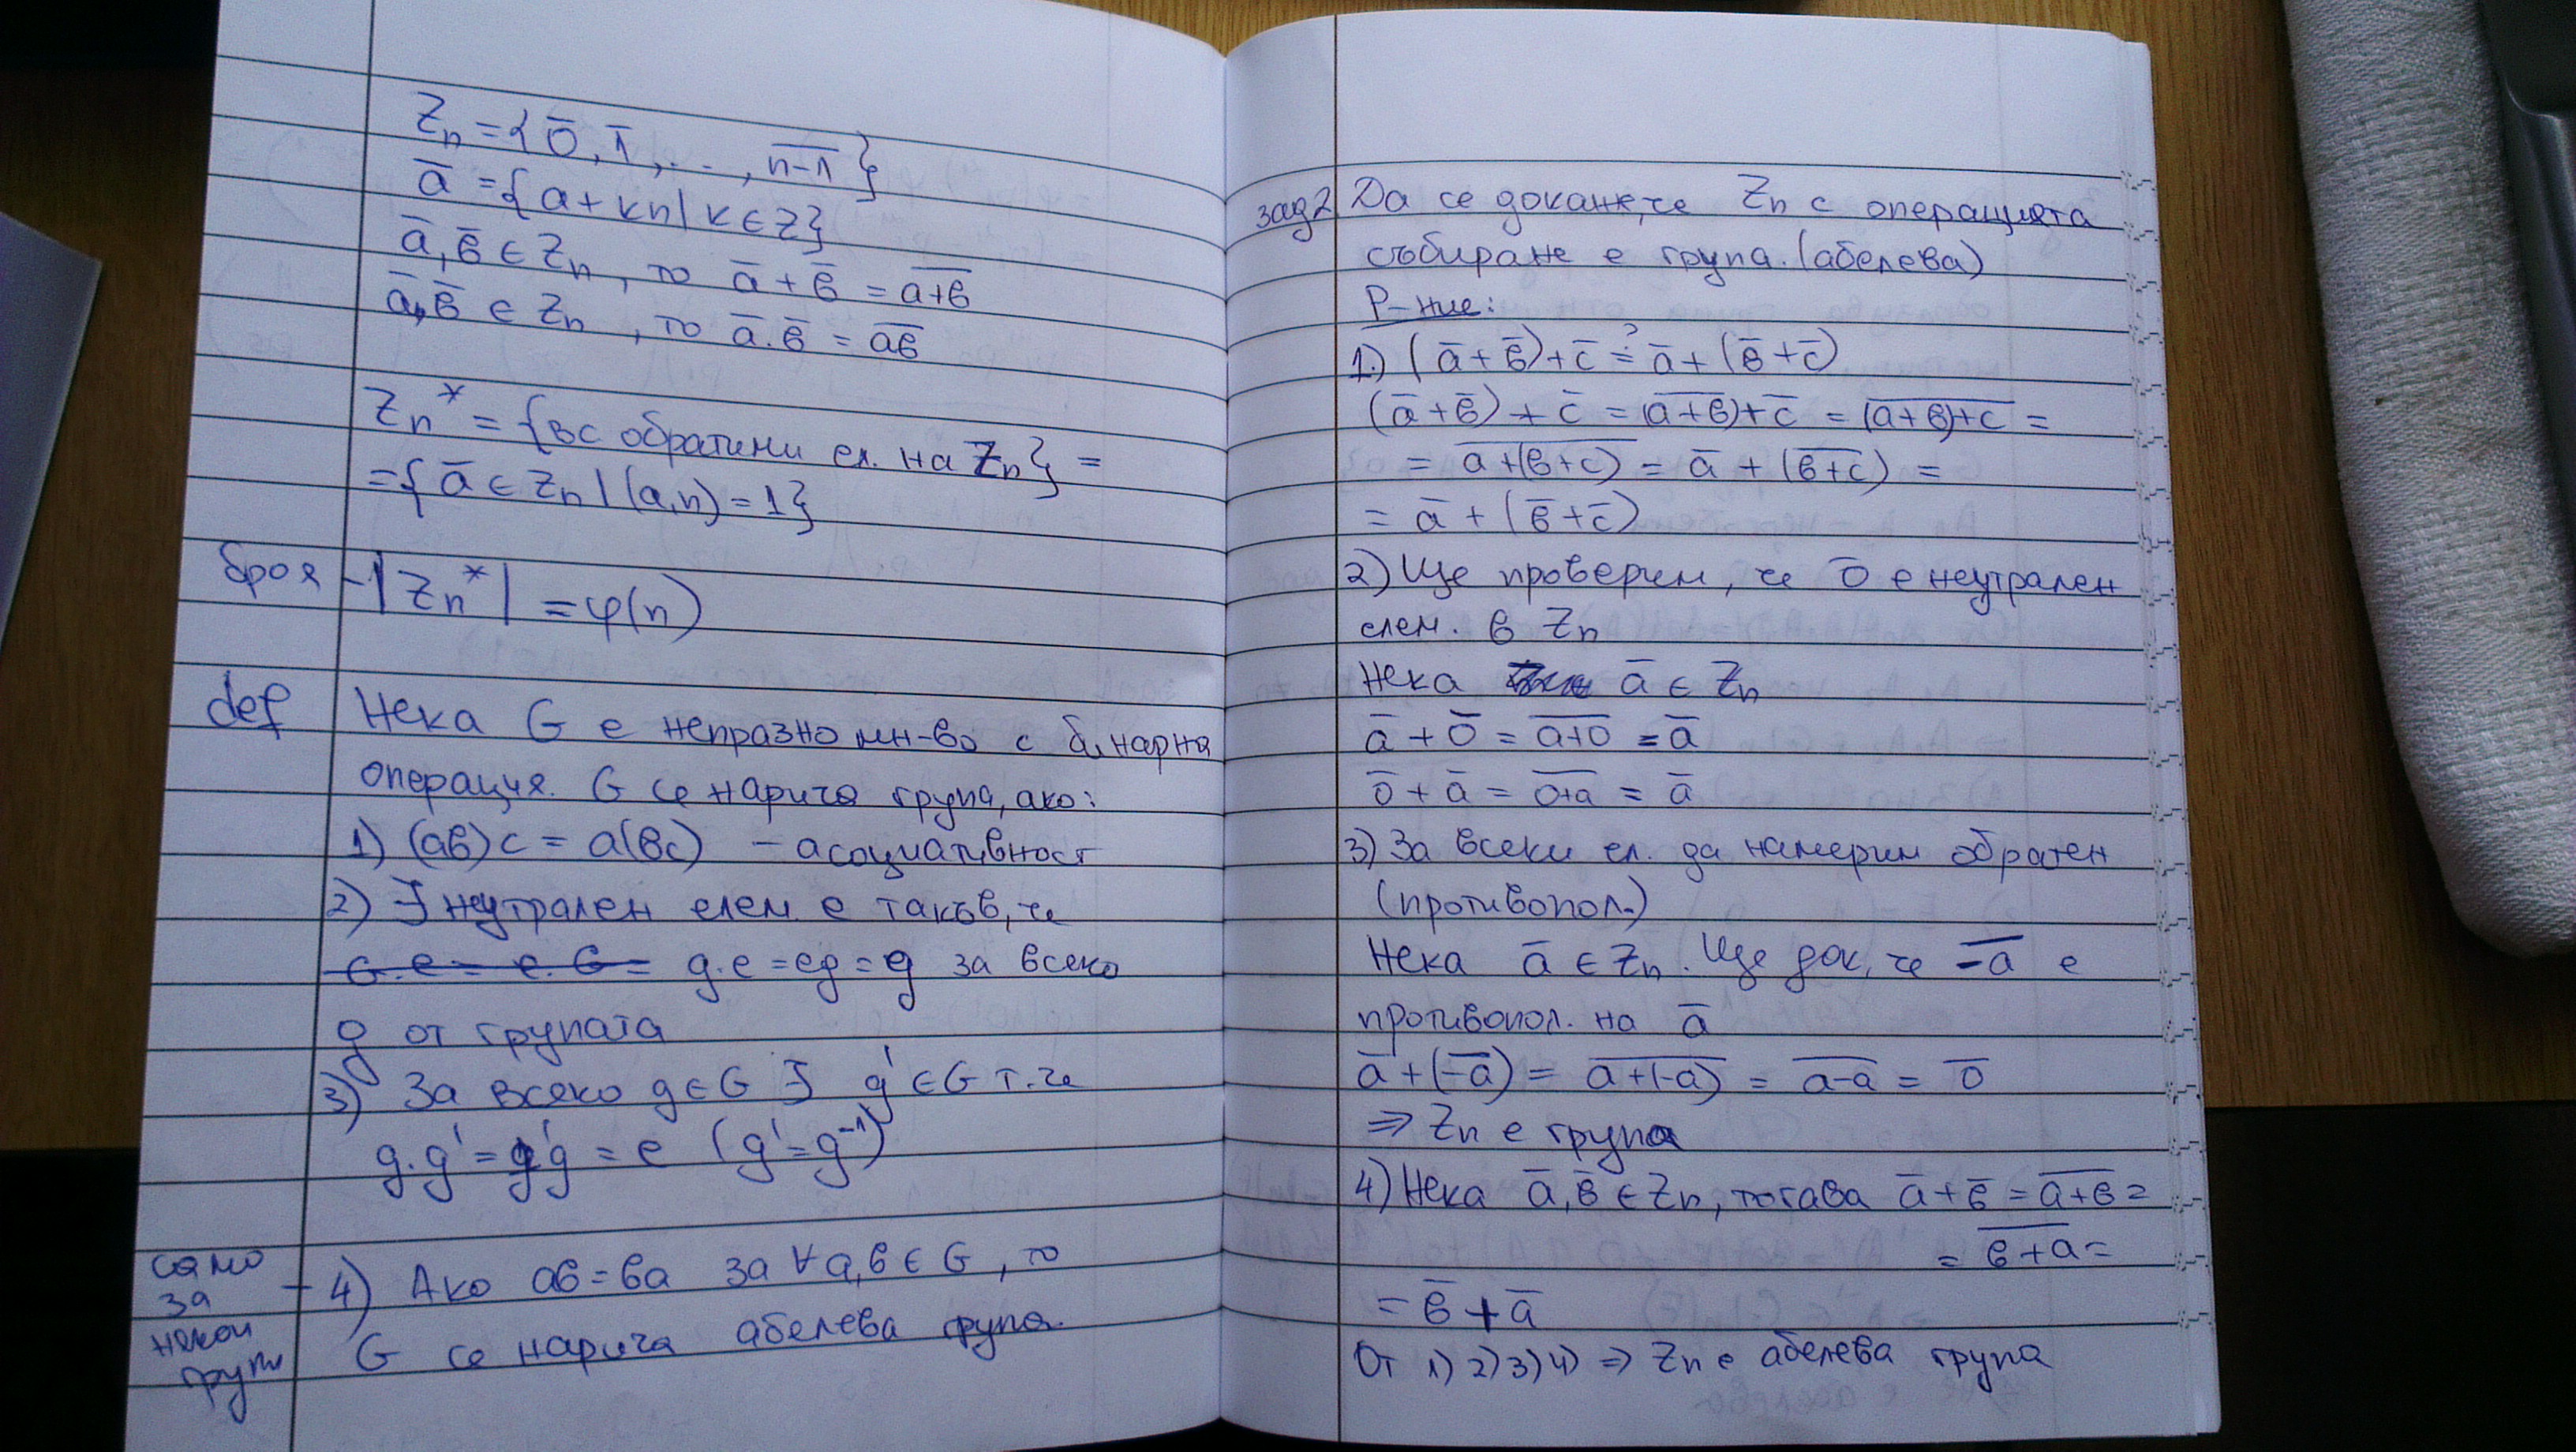 Zn = {0̅, 1̅, ..., n-1̅}
a̅ = {a + kn | k ∈ Z}
a̅, в̅ ∈ Zn, то a̅ + в̅ = a+в̅
a̅, в̅ ∈ Zn, то a̅ . в̅ = aв̅
Zn* = {вс обратими ел. на Zn} =
= {a̅ ∈ Zn | (a,n) = 1}
броя - |Zn*| = φ(n)
def Нека G е непразно мн-во с бинарна
операция. G се нарича група, ако:
1) (aв)c = a(вc) - асоциативност
2) ∃ неутрален елем. e такъв, че
G.e = e.G = g.e = eg = g за всяко
g от групата
3) За всяко g ∈ G ∃ g' ∈ G т.че
g.g' = g'g = e (g' = g⁻¹)
само
за
някои
групи
- 4) Ако aв = вa за ∀ a,в ∈ G, то
G се нарича абелева група.
зад2 Да се докаже, че Zn с операцията
събиране е група. (абелева)
Р-ние:
1.) (a̅ + в̅) + c̅ =? a̅ + (в̅ + c̅)
(a̅ + в̅) + c̅ = (a+в̅) + c̅ = (a+в)+c̅ =
= a+(в+c)̅ = a̅ + (в+c̅) =
= a̅ + (в̅ + c̅)
2) Ще проверим, че 0̅ е неутрален
елем. в Zn
Нека a̅ ∈ Zn
a̅ + 0̅ = a+0̅ = a̅
0̅ + a̅ = 0+a̅ = a̅
3) За всеки ел. да намерим обратен
(противопол.)
Нека a̅ ∈ Zn. Ще док, че -a̅ е
противопол. на a̅
a̅ + (-a̅) = a+(-a)̅ = a-a̅ = 0̅
⇒ Zn е група
4) Нека a̅, в̅ ∈ Zn, тогава a̅ + в̅ = a+в̅ =
= в+a̅ =
= в̅ + a̅
От 1) 2) 3) 4) ⇒ Zn е абелева група